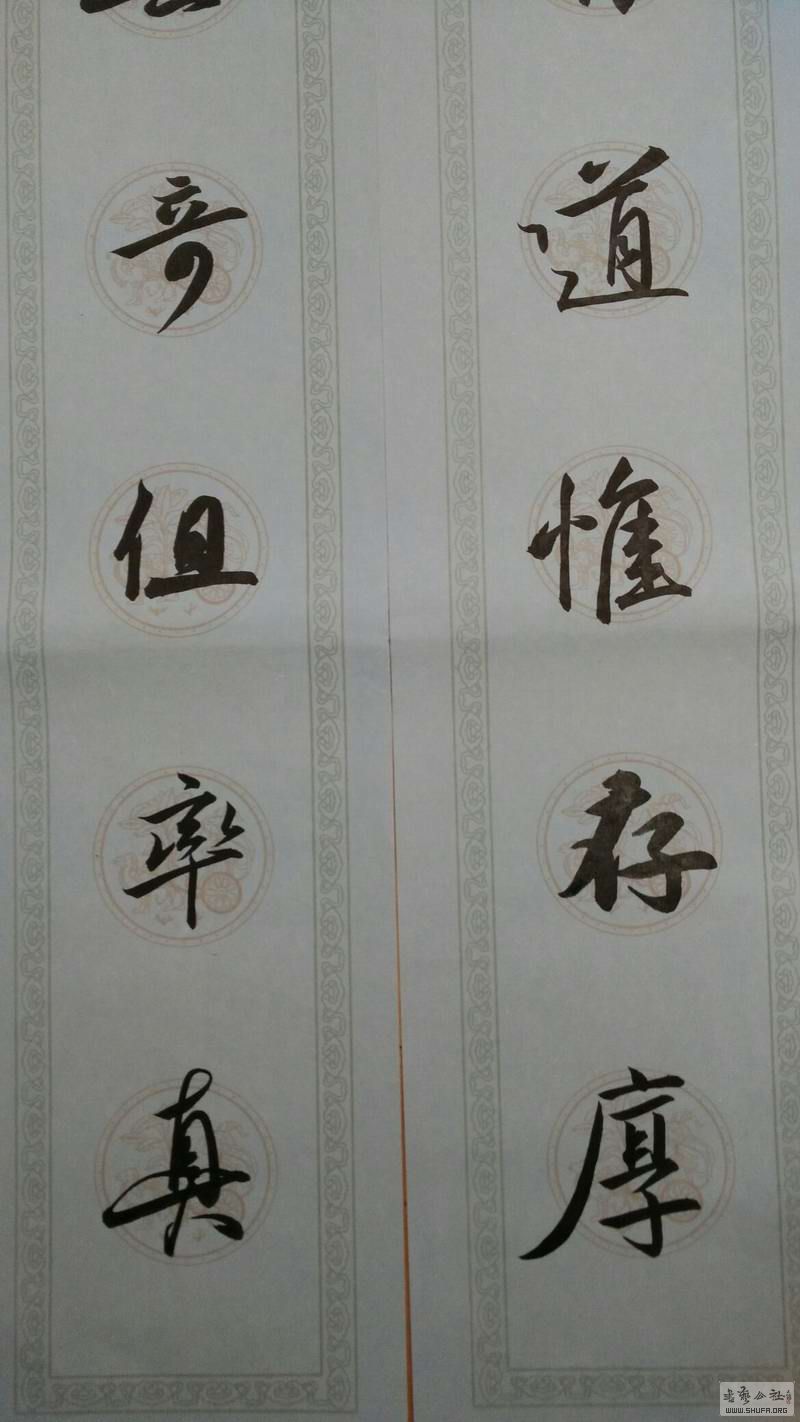 道惟存厚
奇但率真
書藝公社
WWW.SHUFA.ORG